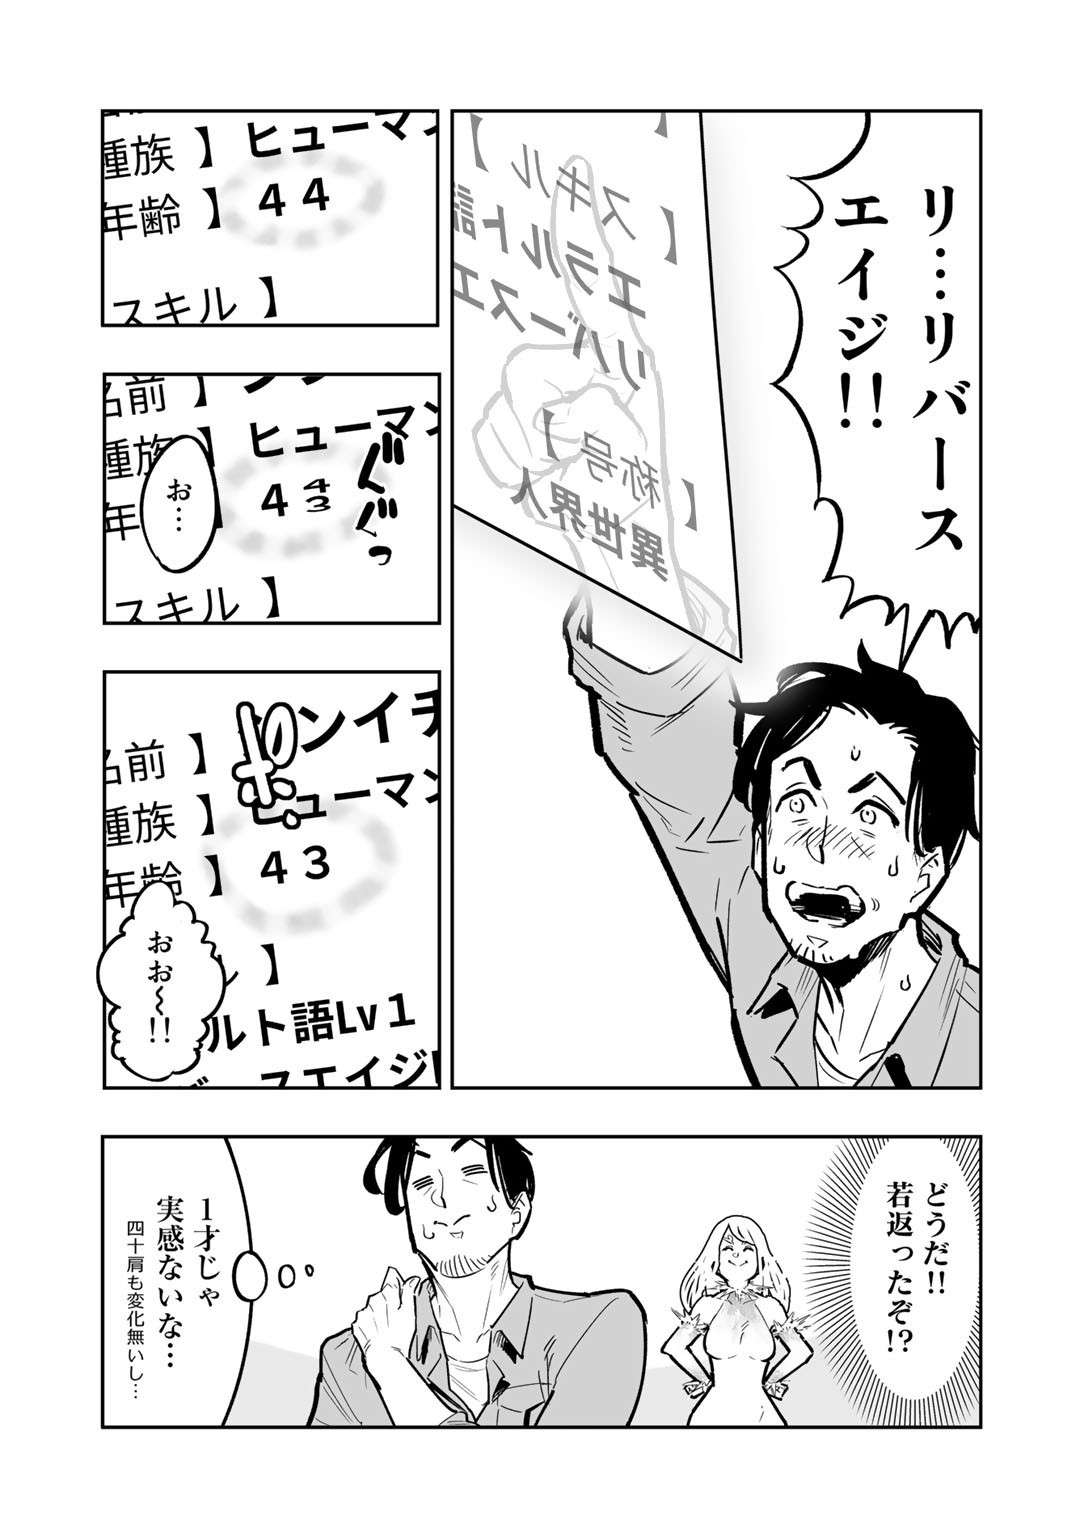 リ…リバース
エイジ!!
【スキル】
エラルト語
リバースエ
【称号】
異世界人
種族 】 ヒューマン
年齢 】 44
スキル 】
名前 】
種族 ヒューマン
年 】 443
スキル 】
お…
ぐんぐっ
名前 】 ンイチ
種族 】 ヒューマン
年齢 】 43
ル 】
ルト語Lv1
ースエイジ
ポン
おお〜!!
どうだ!!
若返ったぞ!?
1才じゃ
実感ないな…
四十肩も変化無いし…